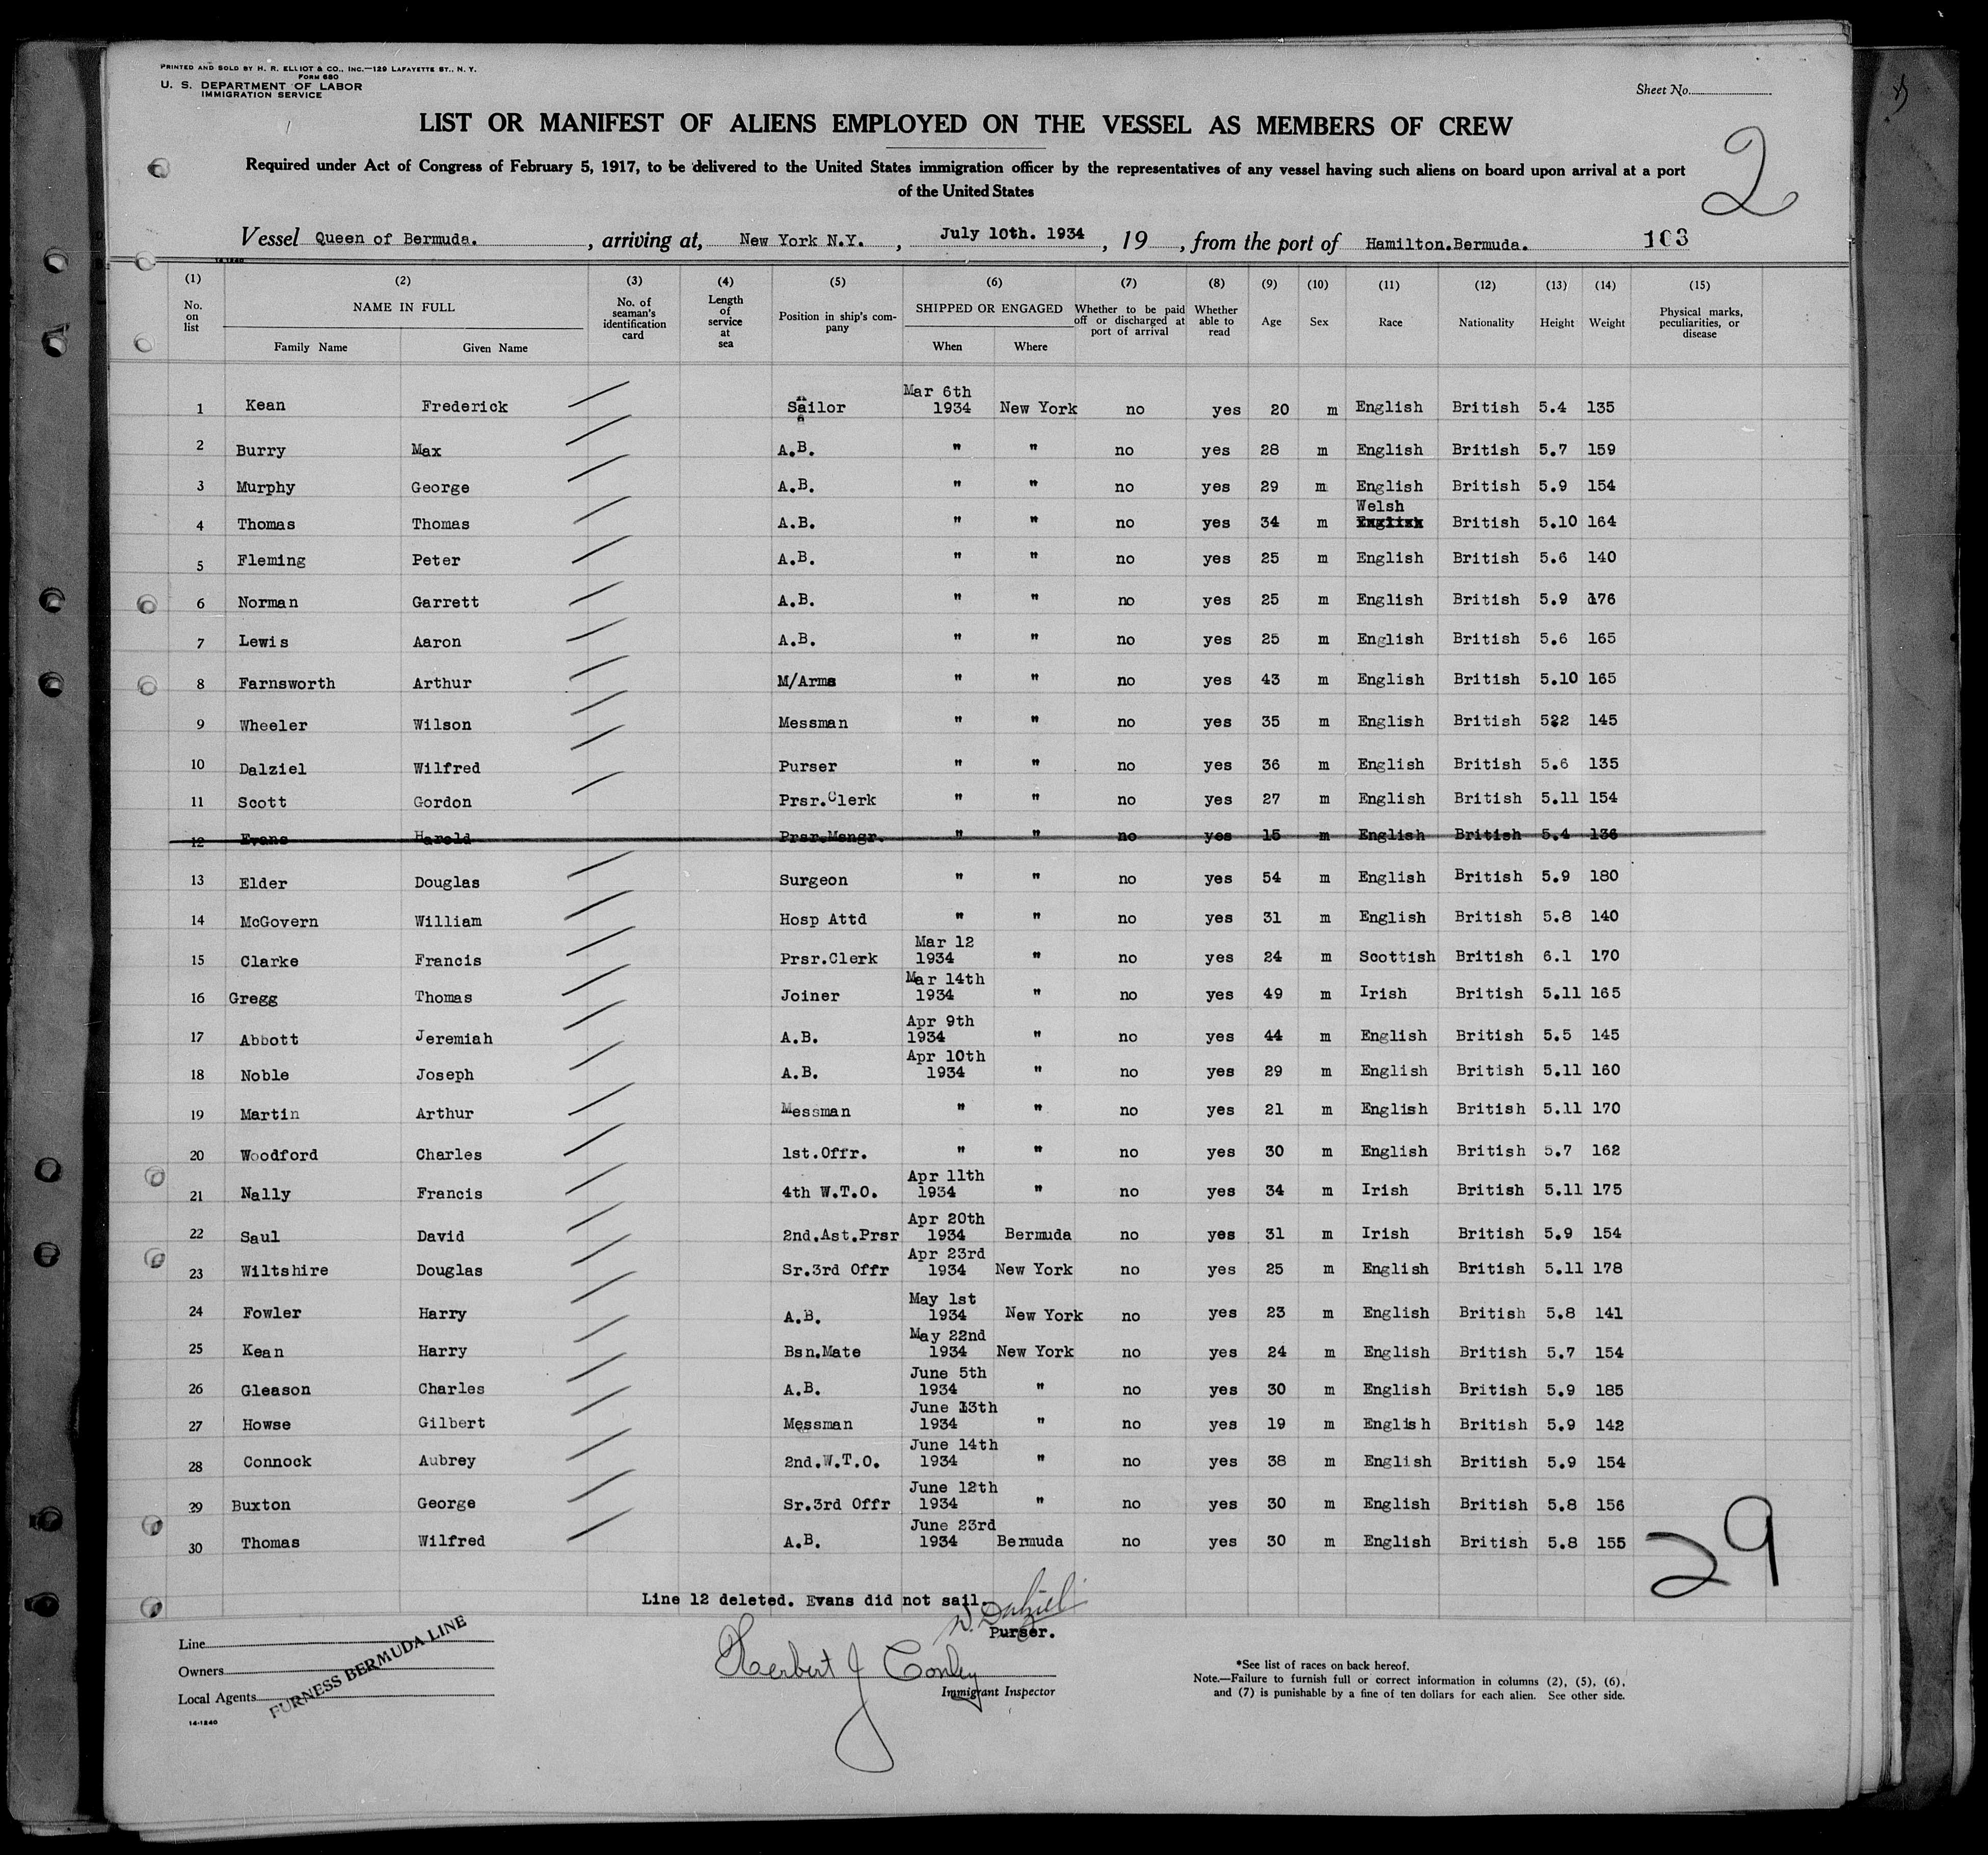 PRINTED AND SOLD BY H. R. ELLIOT & CO., INC.—129 LAFAYETTE ST., N. Y.
FORM 680
U. S. DEPARTMENT OF LABOR
IMMIGRATION SERVICE
Sheet No.
LIST OR MANIFEST OF ALIENS EMPLOYED ON THE VESSEL AS MEMBERS OF CREW
2
Required under Act of Congress of February 5, 1917, to be delivered to the United States immigration officer by the representatives of any vessel having such aliens on board upon arrival at a port
of the United States
Vessel Queen of Bermuda. , arriving at, New York N.Y. , July 10th. 1934 , 19 , from the port of Hamilton.Bermuda. 103
14-1240
(1) (2) (3) (4) (5) (6) (7) (8) (9) (10) (11) (12) (13) (14) (15)
No. on list NAME IN FULL Family Name Given Name No. of seaman's identification card Length of service at sea Position in ship's company SHIPPED OR ENGAGED When Where Whether to be paid off or discharged at port of arrival Whether able to read Age Sex Race Nationality Height Weight Physical marks, peculiarities, or disease
1 Kean Frederick Sailor Mar 6th 1934 New York no yes 20 m English British 5.4 135
2 Burry Max A.B. " " no yes 28 m English British 5.7 159
3 Murphy George A.B. " " no yes 29 m English British 5.9 154
4 Thomas Thomas A.B. " " no yes 34 m Welsh English British 5.10 164
5 Fleming Peter A.B. " " no yes 25 m English British 5.6 140
6 Norman Garrett A.B. " " no yes 25 m English British 5.9 176
7 Lewis Aaron A.B. " " no yes 25 m English British 5.6 165
8 Farnsworth Arthur M/Arms " " no yes 43 m English British 5.10 165
9 Wheeler Wilson Messman " " no yes 35 m English British 522 145
10 Dalziel Wilfred Purser " " no yes 36 m English British 5.6 135
11 Scott Gordon Prsr.Clerk " " no yes 27 m English British 5.11 154
12 Evans Harold Prsr.Mengr. " " no yes 15 m English British 5.4 136
13 Elder Douglas Surgeon " " no yes 54 m English British 5.9 180
14 McGovern William Hosp Attd " " no yes 31 m English British 5.8 140
15 Clarke Francis Prsr.Clerk Mar 12 1934 " no yes 24 m Scottish British 6.1 170
16 Gregg Thomas Joiner Mar 14th 1934 " no yes 49 m Irish British 5.11 165
17 Abbott Jeremiah A.B. Apr 9th 1934 " no yes 44 m English British 5.5 145
18 Noble Joseph A.B. Apr 10th 1934 " no yes 29 m English British 5.11 160
19 Martin Arthur Messman " " no yes 21 m English British 5.11 170
20 Woodford Charles 1st.Offr. " " no yes 30 m English British 5.7 162
21 Nally Francis 4th W.T.O. Apr 11th 1934 " no yes 34 m Irish British 5.11 175
22 Saul David 2nd.Ast.Prsr Apr 20th 1934 Bermuda no yes 31 m Irish British 5.9 154
23 Wiltshire Douglas Sr.3rd Offr Apr 23rd 1934 New York no yes 25 m English British 5.11 178
24 Fowler Harry A.B. May 1st 1934 New York no yes 23 m English British 5.8 141
25 Kean Harry Bsn.Mate May 22nd 1934 New York no yes 24 m English British 5.7 154
26 Gleason Charles A.B. June 5th 1934 " no yes 30 m English British 5.9 185
27 Howse Gilbert Messman June 13th 1934 " no yes 19 m English British 5.9 142
28 Connock Aubrey 2nd.W.T.O. June 14th 1934 " no yes 38 m English British 5.9 154
29 Buxton George Sr.3rd Offr June 12th 1934 " no yes 30 m English British 5.8 156
30 Thomas Wilfred A.B. June 23rd 1934 Bermuda no yes 30 m English British 5.8 155
29
Line 12 deleted. Evans did not sail.
W. Dalziel
Purser.
Line
Owners
Local Agents
FURNESS BERMUDA LINE
14-1240
Herbert J Conley
Immigrant Inspector
*See list of races on back hereof.
Note.—Failure to furnish full or correct information in columns (2), (5), (6),
and (7) is punishable by a fine of ten dollars for each alien. See other side.